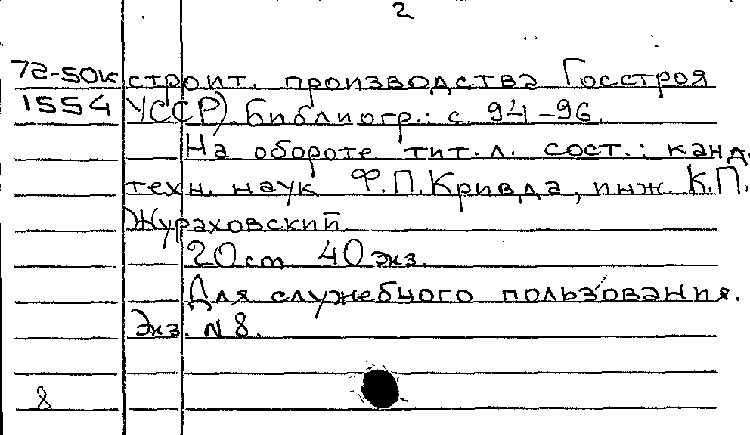 2
72-50к строит. производства Госстроя
1554 УССР) Библиогр.: с. 94-96.
На обороте тит. л. сост.: канд.
техн. наук Ф.П. Кривда, инж. К.П.
Жураховский.
20 см 40 экз.
Для служебного пользования.
Экз. N 8.
8